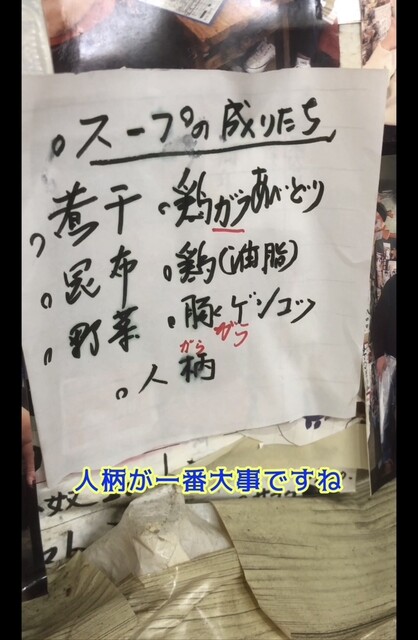 。スープの成りたち
。煮干
。鶏ガラあいどり
。昆布
。鶏(油脂)
。野菜
。豚ゲンコツ
がら
がら
。人柄
人柄が一番大事ですね